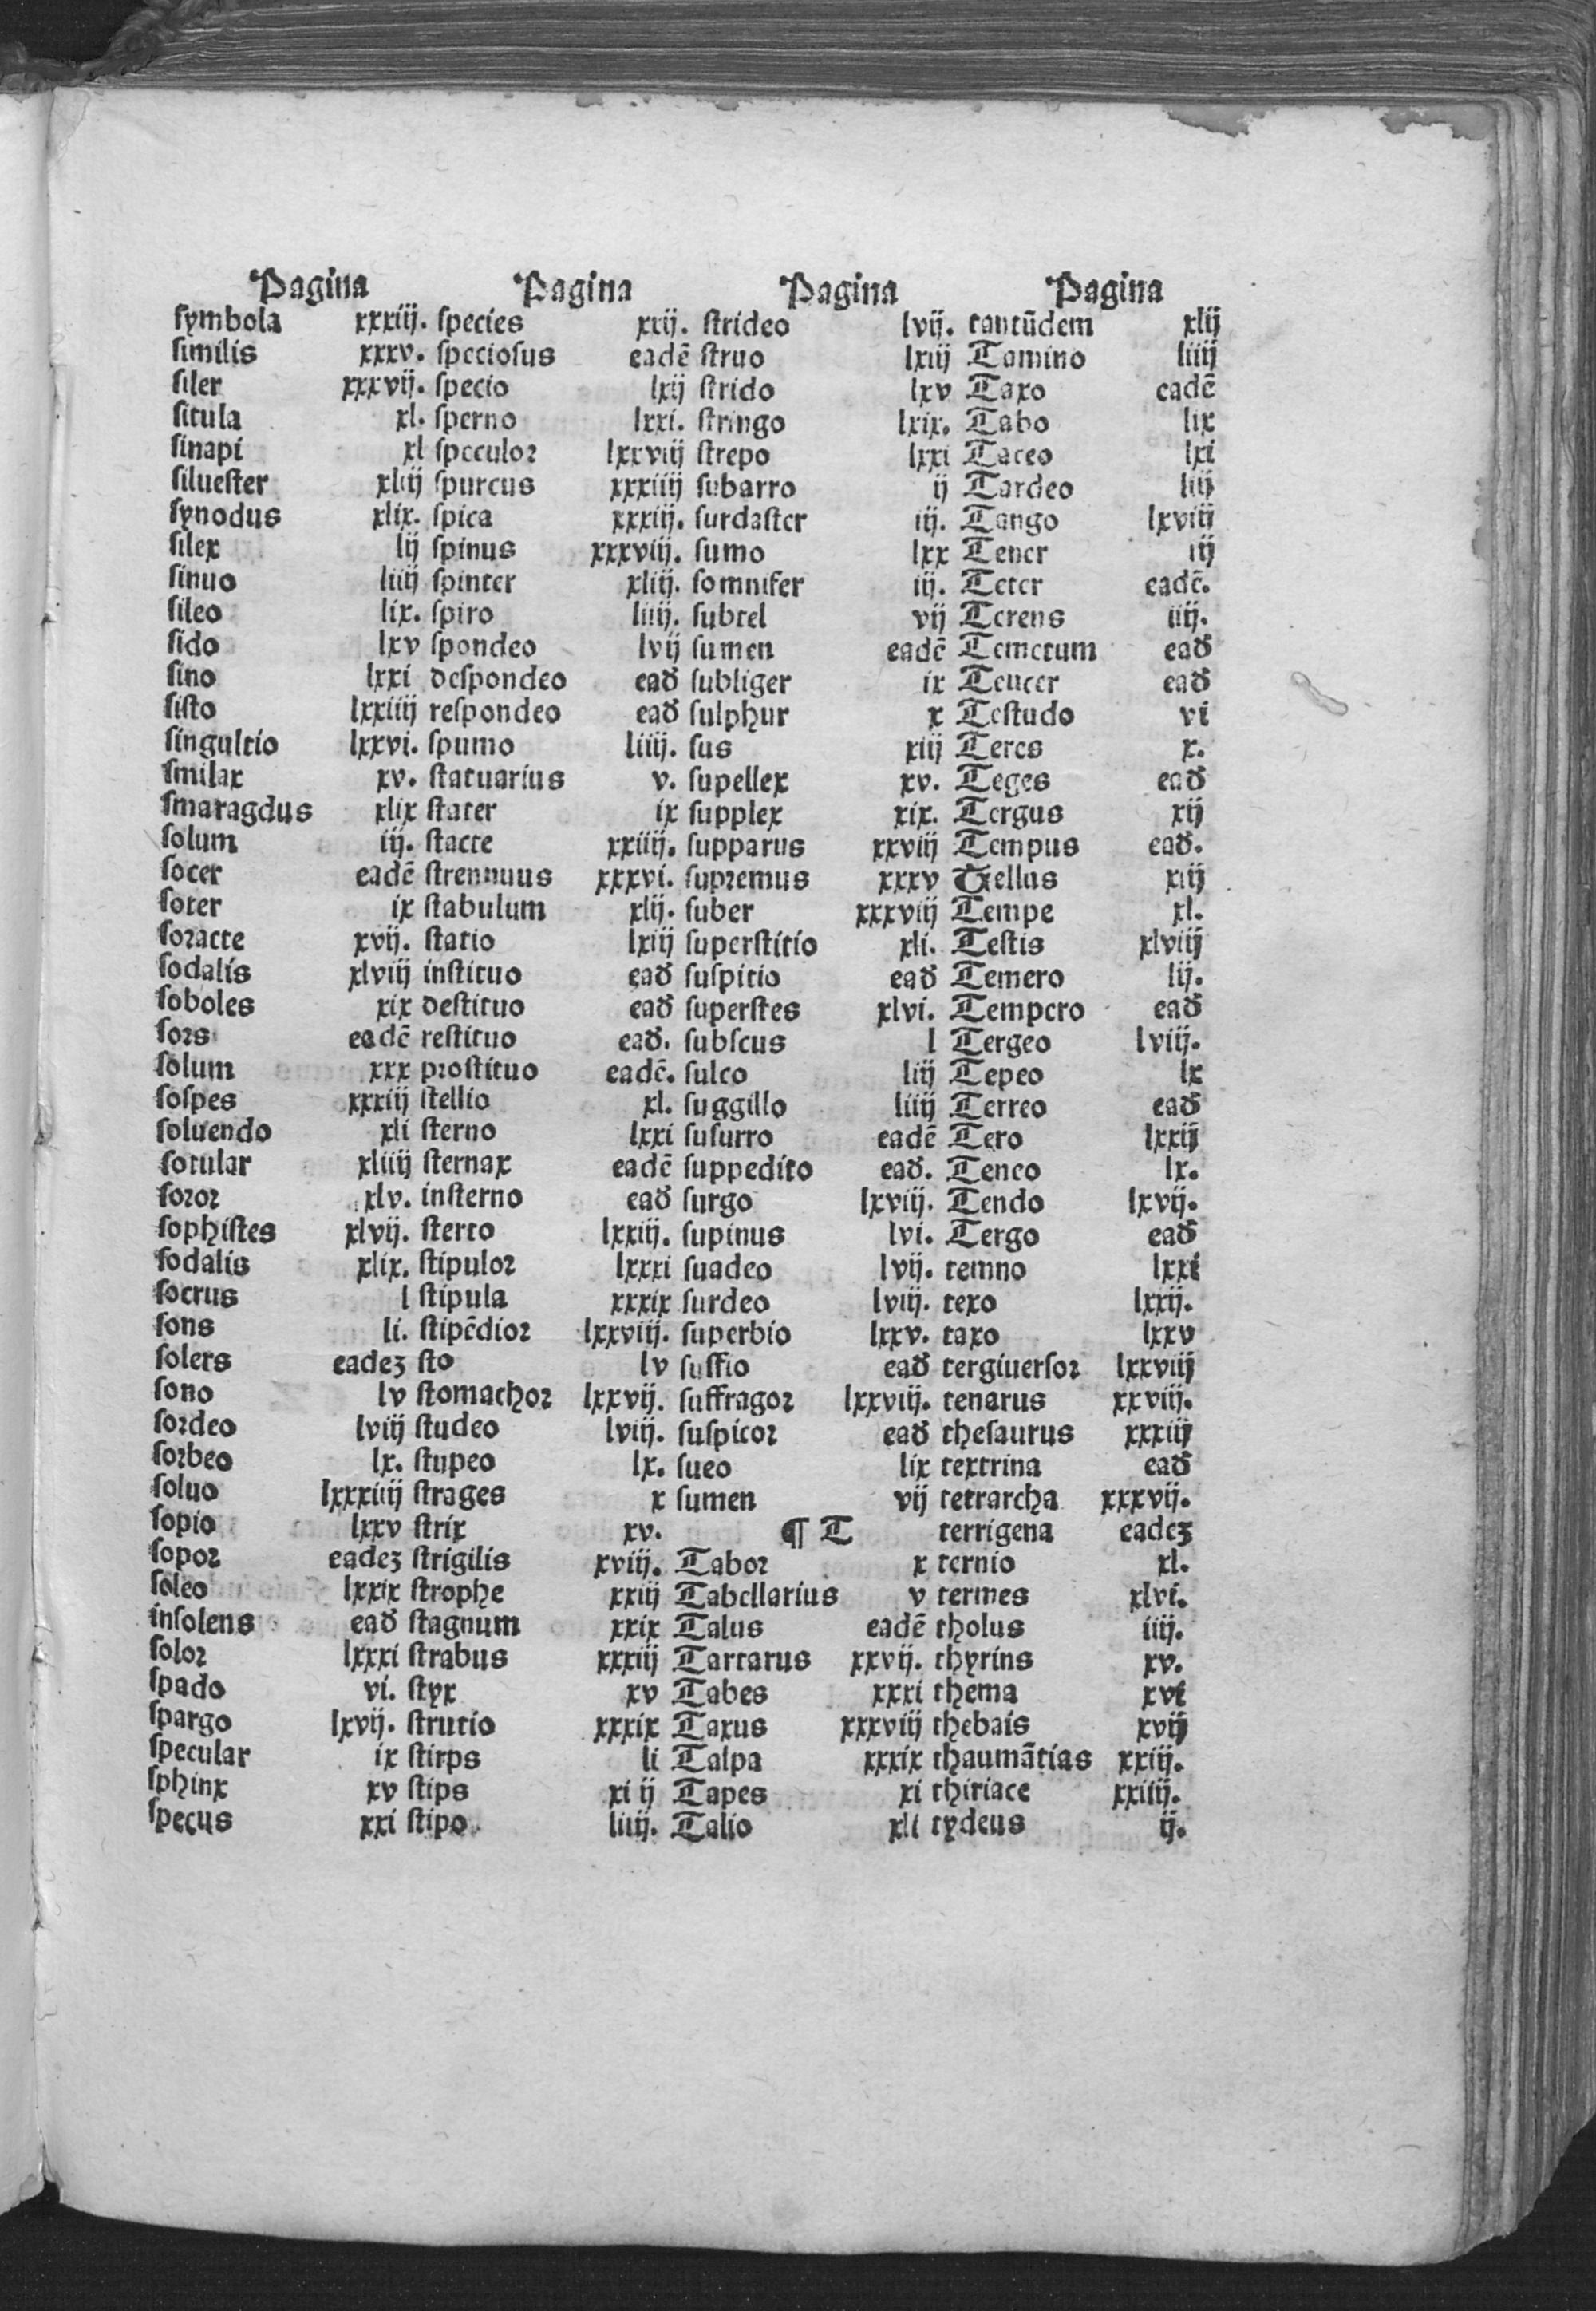 Pagina Pagina Pagina Pagina
ſymbola xxxiij. ſpecies xxij. ſtrideo lvij. tantūdem xlij
ſimilis xxxv. ſpecioſus eadē ſtruo lxiij Tamino liiij
ſiler xxxvij. ſpecio lxij ſtrido lxv Taxo eadē
ſitula xl. ſperno lxxi. ſtringo lxix. Tabo lix
ſinapi xl ſpeculoꝛ lxxviij ſtrepo lxxi Taceo lxi
ſilueſter xliij ſpurcus xxxiiij ſubarro ij Tardeo liij
ſynodus xlix. ſpica xxxiij. ſurdaſter iij. Tango lxviij
ſilex lij ſpinus xxxviij. ſumo lxx Tener iij
ſinuo liiij ſpinter xliij. ſomnifer iij. Teter eadē.
ſileo lix. ſpiro liiij. ſubtel vij Terens iiij.
ſido lxv ſpondeo lvij ſumen eadē Temetum eaď
ſino lxxi deſpondeo eaď ſubliger ix Teucer eaď
ſiſto lxxiiij reſpondeo eaď ſulphur x Teſtudo vi
ſingultio lxxvi. ſpumo liiij. ſus xiij Teres x.
ſmilax xv. ſtatuarius v. ſupellex xv. Teges eaď
ſmaragdus xlix ſtater ix ſupplex xix. Tergus xij
ſolum iij. ſtacte xxiiij. ſupparus xxviij Tempus eaď.
ſocer eadē ſtrennuus xxxvi. ſupꝛemus xxxv Tellus xiij
ſoter ix ſtabulum xlij. ſuber xxxviij Tempe xl.
ſoꝛacte xvij. ſtatio lxiij ſuperſtitio xli. Teſtis xlviij
ſodalis xlviij inſtituo eaď ſuſpitio eaď Temero lij.
ſoboles xix deſtituo eaď ſuperſtes xlvi. Tempero eaď
ſoꝛs eadē reſtituo eaď. ſubſcus l Tergeo lviij.
ſolum xxx pꝛoſtituo eadē. ſulco liij Tepeo lx
ſoſpes xxxiij ſtellio xl. ſuggillo liiij Terreo eaď
ſoluendo xli ſterno lxxi ſuſurro eadē Tero lxxij
ſotular xliiij ſternax eadē ſuppedito eaď. Teneo lx.
ſoꝛoꝛ xlv. inſterno eaď ſurgo lxviij. Tendo lxvij.
ſophiſtes xlvij. ſterto lxxiij. ſupinus lvi. Tergo eaď
ſodalis xlix. ſtipuloꝛ lxxxi ſuadeo lvij. temno lxxi
ſocrus l ſtipula xxxix ſurdeo lviij. texo lxxij.
ſons li. ſtipēdioꝛ lxxviij. ſuperbio lxxv. taxo lxxv
ſolers eadeʒ ſto lv ſuffio eaď tergiuerſoꝛ lxxviij
ſono lv ſtomachoꝛ lxxvij. ſuffragoꝛ lxxviij. tenarus xxviij.
ſoꝛdeo lviij ſtudeo lviij. ſuſpicoꝛ eaď theſaurus xxxiij
ſoꝛbeo lx. ſtupeo lx. ſueo lix textrina eaď
ſoluo lxxxiiij ſtrages x ſumen vij tetrarcha xxxvij.
ſopio lxxv ſtrix xv. ¶ T terrigena eadeʒ
ſopoꝛ eadeʒ ſtrigilis xviij. Taboꝛ x ternio xl.
ſoleo lxxix ſtrophe xxiij Tabellarius v termes xlvi.
inſolens eaď ſtagnum xxix Talus eadē tholus iiij.
ſoloꝛ lxxxi ſtrabus xxxiij Tartarus xxvij. thyrins xv.
ſpado vi. ſtyx xv Tabes xxxi thema xvi
ſpargo lxvij. ſtrutio xxxix Taxus xxxviij thebais xvij
ſpecular ix ſtirps li Talpa xxxix thaumātias xxiij.
ſphinx xv ſtips xi ij Tapes xi thiriace xxiiij.
ſpecus xxi ſtipo liiij. Talio xli tydeus ij.